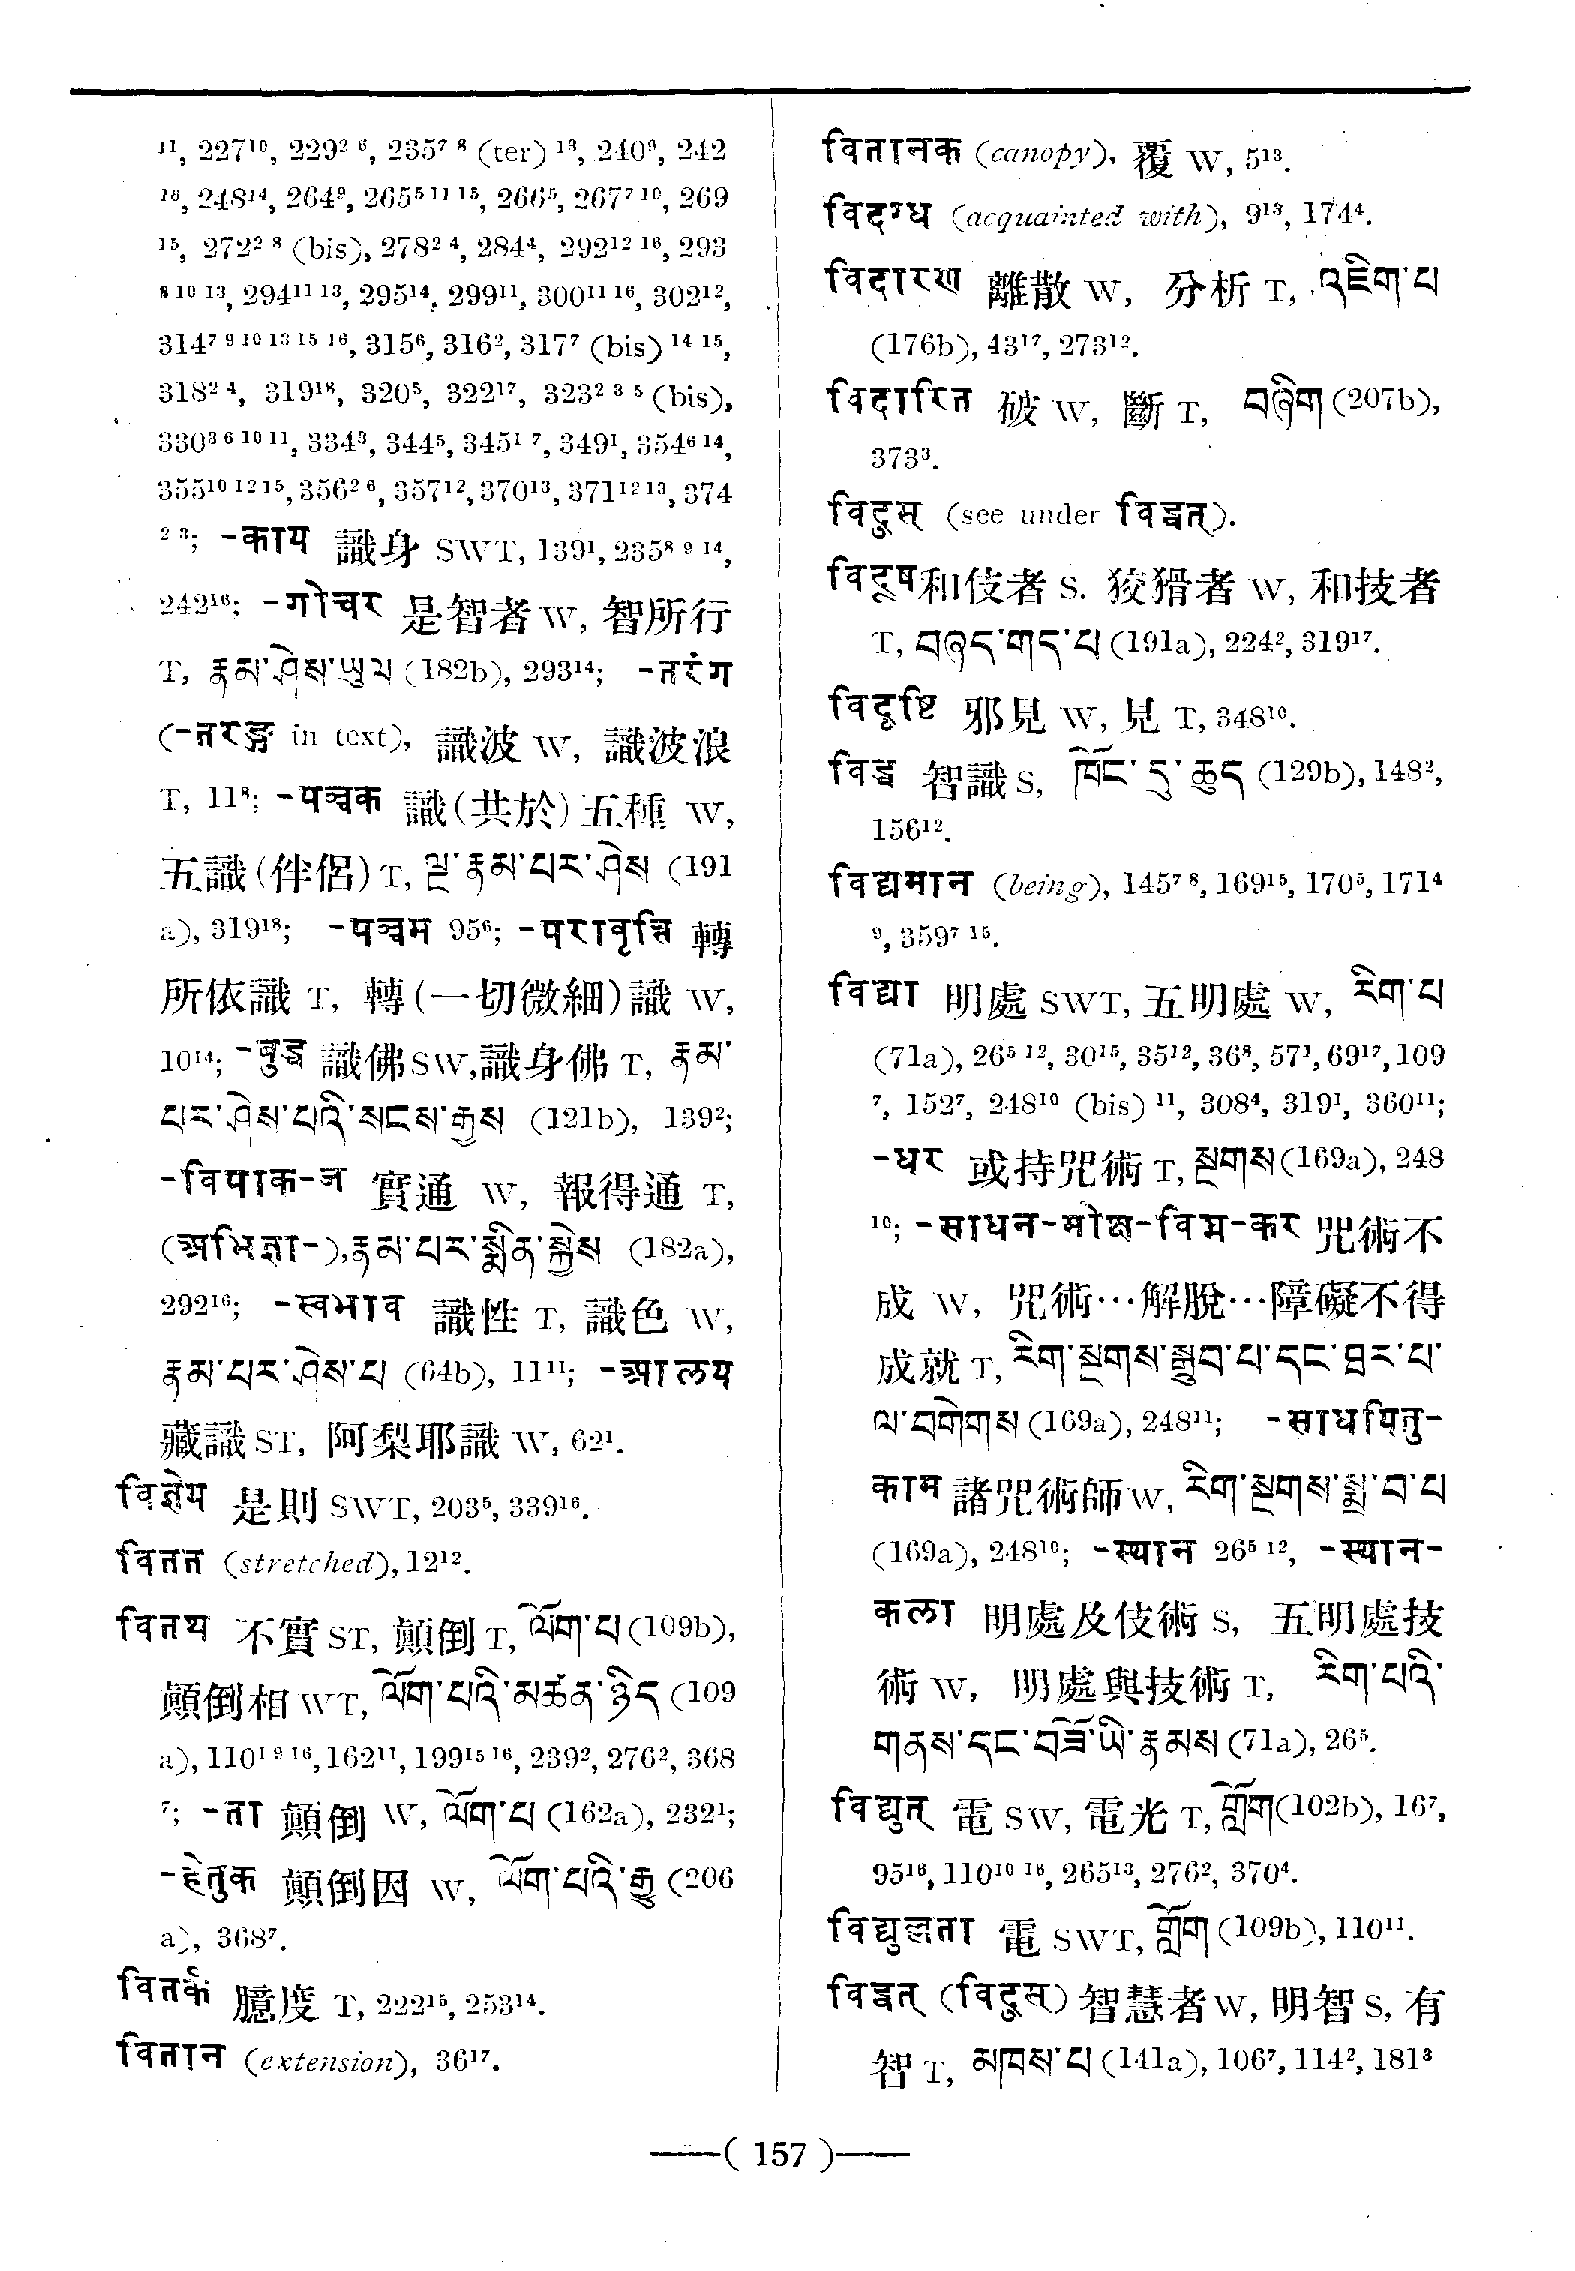 ¹¹, 227¹⁰, 229² ⁶, 235⁷ ⁸ (ter) ¹³, 240⁹, 242
¹⁶, 248¹⁴, 264⁹, 265⁵ ¹¹ ¹⁵, 266⁵, 267⁷ ¹⁰, 269
¹⁵, 272² ⁸ (bis), 278² ⁴, 284⁴, 292¹² ¹⁶, 293
⁸ ¹⁰ ¹³, 294¹¹ ¹³, 295¹⁴, 299¹¹, 300¹¹ ¹⁶, 302¹²,
314⁷ ⁹ ¹⁰ ¹³ ¹⁵ ¹⁶, 315⁶, 316², 317⁷ (bis) ¹⁴ ¹⁵,
318² ⁴, 319¹⁸, 320⁵, 322¹⁷, 323² ³ ⁵ (bis),
330³ ⁶ ¹⁰ ¹¹, 334³, 344⁵, 345¹ ⁷, 349¹, 354⁶ ¹⁴,
355¹⁰ ¹² ¹⁵, 356² ⁶, 357¹², 370¹³, 371¹² ¹³, 374
² ³; -काय 識身 SWT, 139¹, 235⁸ ⁹ ¹⁴,
242¹⁶; -गोचर 是智者 W, 智所行
T, རྣམ་ཤེས་ཡུལ (182b), 293¹⁴; -तरंग
(-तरङ्ग in text), 識波 W, 識波浪
T, 11⁸; -पञ्चक 識(共於)五種 W,
五識(伴侶) T, ལྔ་རྣམ་པར་ཤེས (191
a), 319¹⁸; -पञ्चम 95⁶; -परावृत्ति 轉
所依識 T, 轉(一切微細)識 W,
10¹⁴; -बुद्ध 識佛SW,識身佛 T, རྣམ་
པར་ཤེས་པའི་སངས་རྒྱས (121b), 139²;
-विपाक-ज 實通 W, 報得通 T,
(अभिज्ञा-),རྣམ་པར་སྨིན་སྐྱེས (182a),
292¹⁶; -स्वभाव 識性 T, 識色 W,
རྣམ་པར་ཤེས་པ (64b), 11¹¹; -आलय
藏識 ST, 阿梨耶識 W, 62¹.
विज्ञेय 是則 SWT, 203⁵, 339¹⁶.
वितत (stretched), 12¹².
वितथ 不實 ST, 顛倒 T, ལོག་པ (109b),
顛倒相 WT, ལོག་པའི་མཚན་ཉིད (109
a), 110¹ ⁹ ¹⁶, 162¹¹, 199¹⁵ ¹⁶, 239², 276², 368
⁷; -ता 顛倒 W, ལོག་པ (162a), 232¹;
-हेतुक 顛倒因 W, ལོག་པའི་རྒྱུ (206
a), 368⁷.
वितर्क 臆度 T, 222¹⁵, 253¹⁴.
वितान (extension), 36¹⁷.
वितानक (canopy), 覆 W, 5¹³.
विदग्ध (acquainted with), 9¹³, 174⁴.
विदारण 離散 W, 分析 T, འཇིག་པ
(176b), 43¹⁷, 273¹².
विदारित 破 W, 斷 T, བཤིག (207b),
373³.
विदुस् (see under विद्वत्).
विदूष 和伎者 S. 狡猾者 W, 和技者
T, བཞད་གད་པ (191a), 224², 319¹⁷.
विदृष्टि 邪見 W, 見 T, 348¹⁰.
विद्ध 智識 S, ཁོང་དུ་ཆུད (129b), 148²,
156¹².
विद्यमान (being), 145⁷ ⁸, 169¹⁵, 170⁵, 171⁴
⁹, 359⁷ ¹⁵.
विद्या 明處 SWT, 五明處 W, རིག་པ
(71a), 26⁵ ¹², 30¹⁵, 35¹², 36⁸, 57¹, 69¹⁷, 109
⁷, 152⁷, 248¹⁰ (bis) ¹¹, 308⁴, 319¹, 360¹¹;
-धर 或持咒術 T, སྔགས (169a), 248
¹⁰; -साधन-मोक्ष-विघ्न-कर 咒術不
成 W, 咒術…解脫…障礙不得
成就 T, རིག་སྔགས་སྒྲུབ་པ་དང་ཐར་པ་
ལ་བགེགས (169a), 248¹¹; -साधयितु-
काम 諸咒術師 W, རིག་སྔགས་སྨྲ་བ་པ
(169a), 248¹⁰; -स्थान 26⁵ ¹², -स्थान-
कला 明處及伎術 S, 五明處技
術 W, 明處與技術 T, རིག་པའི་
གནས་དང་བཟོ་ཡི་རྣམས (71a), 26⁵.
विद्युत् 電 SW, 電光 T, གློག (102b), 16⁷,
95¹⁶, 110¹⁰ ¹⁶, 265¹³, 276², 370⁴.
विद्युल्लता 電 SWT, གློག (109b), 110¹¹.
विद्वत् (विदुस्) 智慧者 W, 明智 S, 有
智 T, མཁས་པ (141a), 106⁷, 114², 181³
—( 157 )—